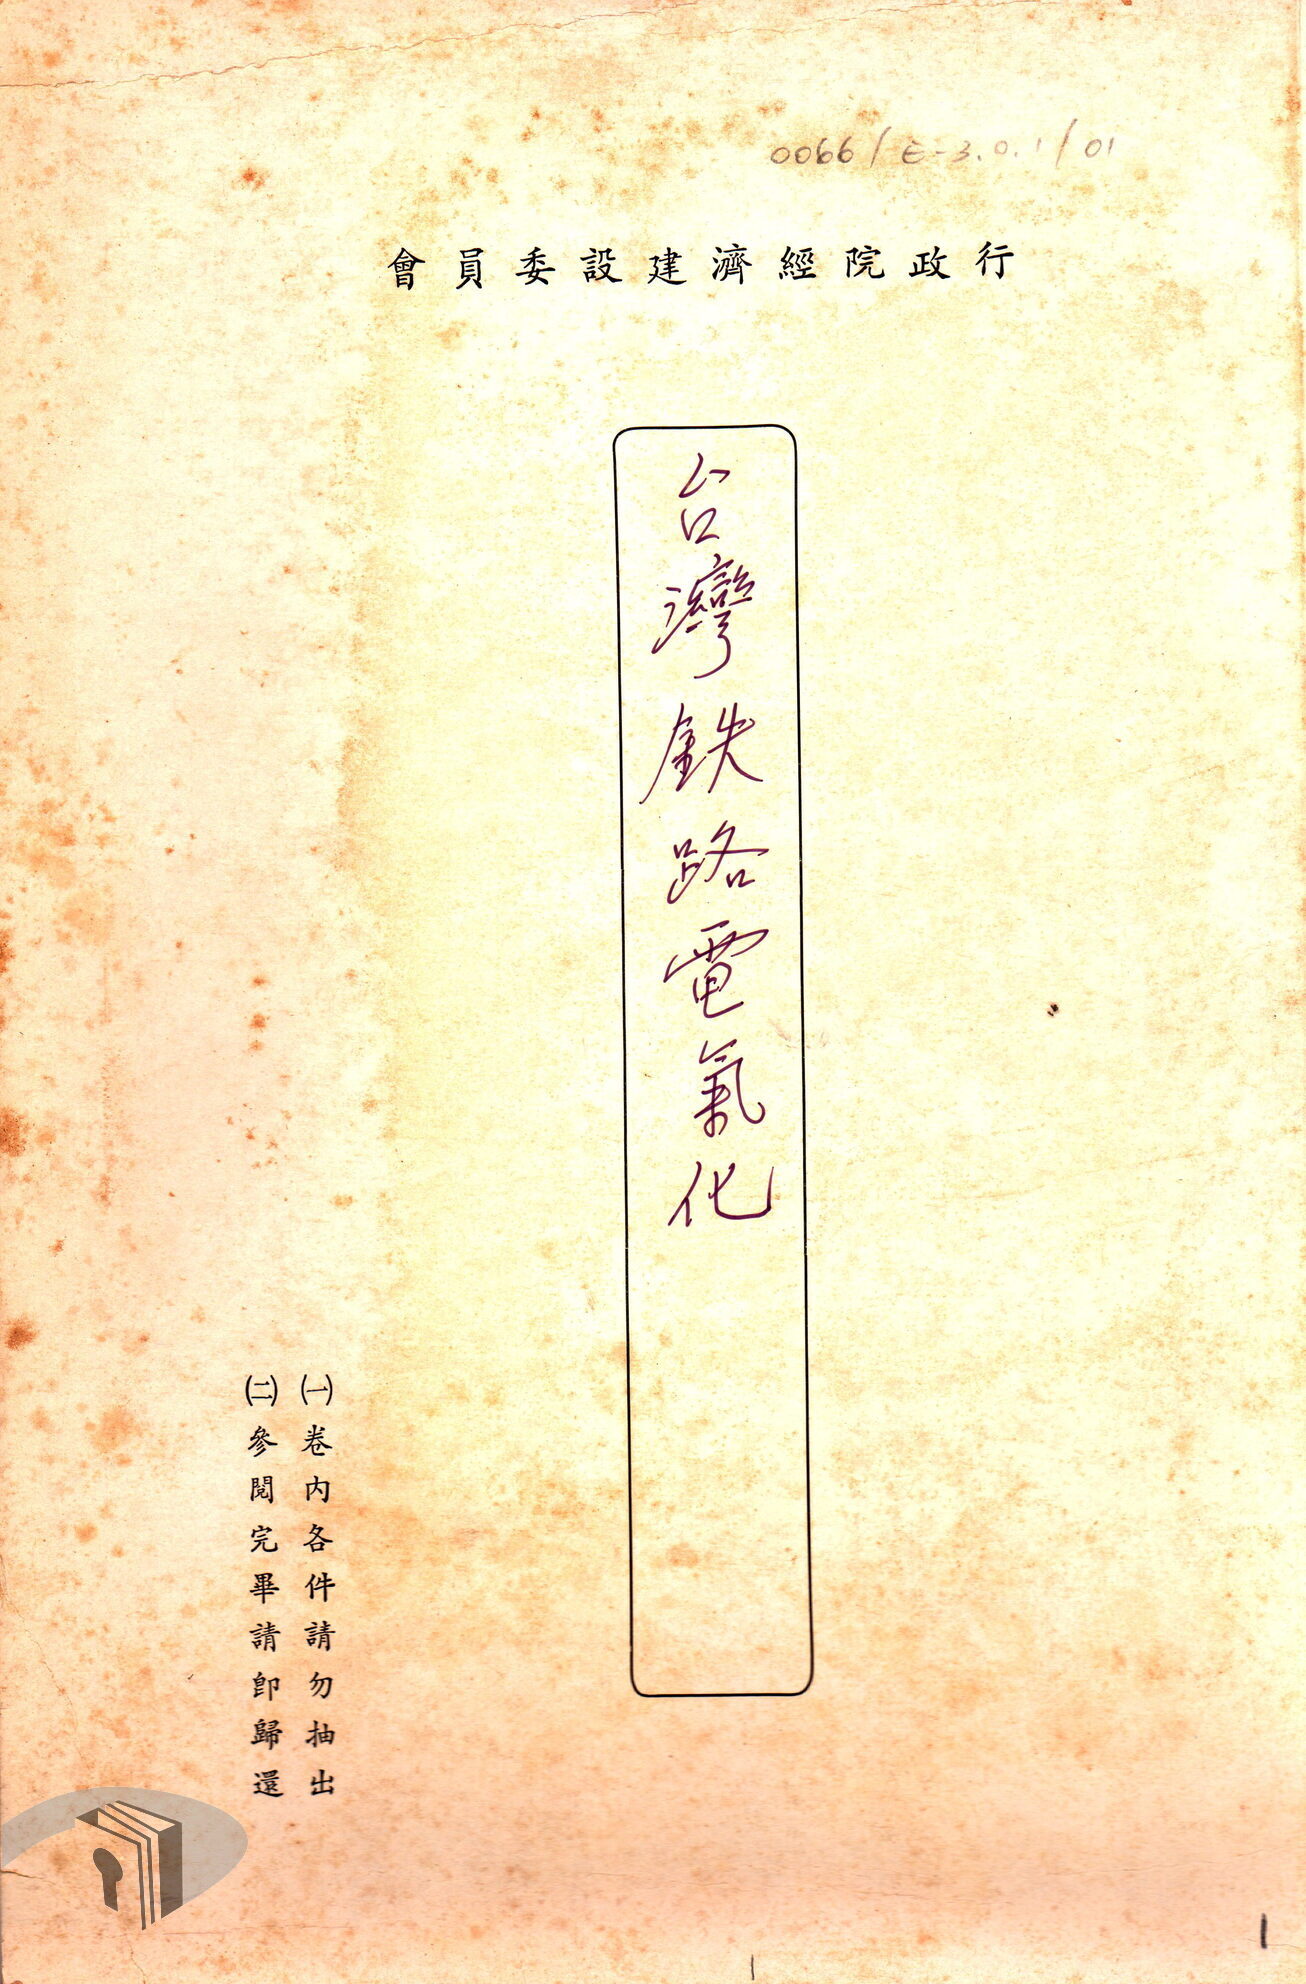 0066/E-3.0.1/01
行政院經濟建設委員會
台灣鉄路電氣化
㈠卷內各件請勿抽出
㈡參閱完畢請卽歸還
1